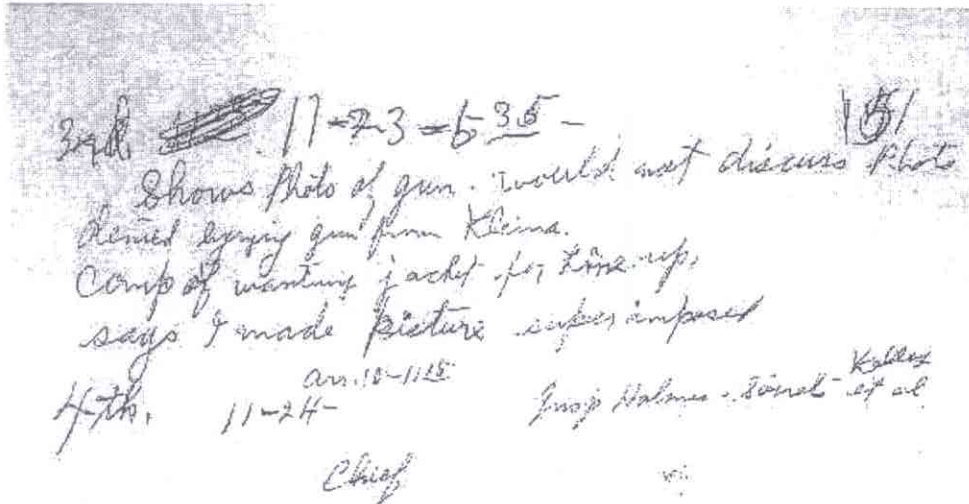 3rd. 11-23-6 35- 151
Shows Photo of gun. would not discuss Photo
denied buying gun from Kleins.
Comp of wanting jacket for Line up.
says I made picture super imposed
arr. 10-11 15 Kelley
4-th. 11-24- Insp Holmes - Sorrels et al
Chief